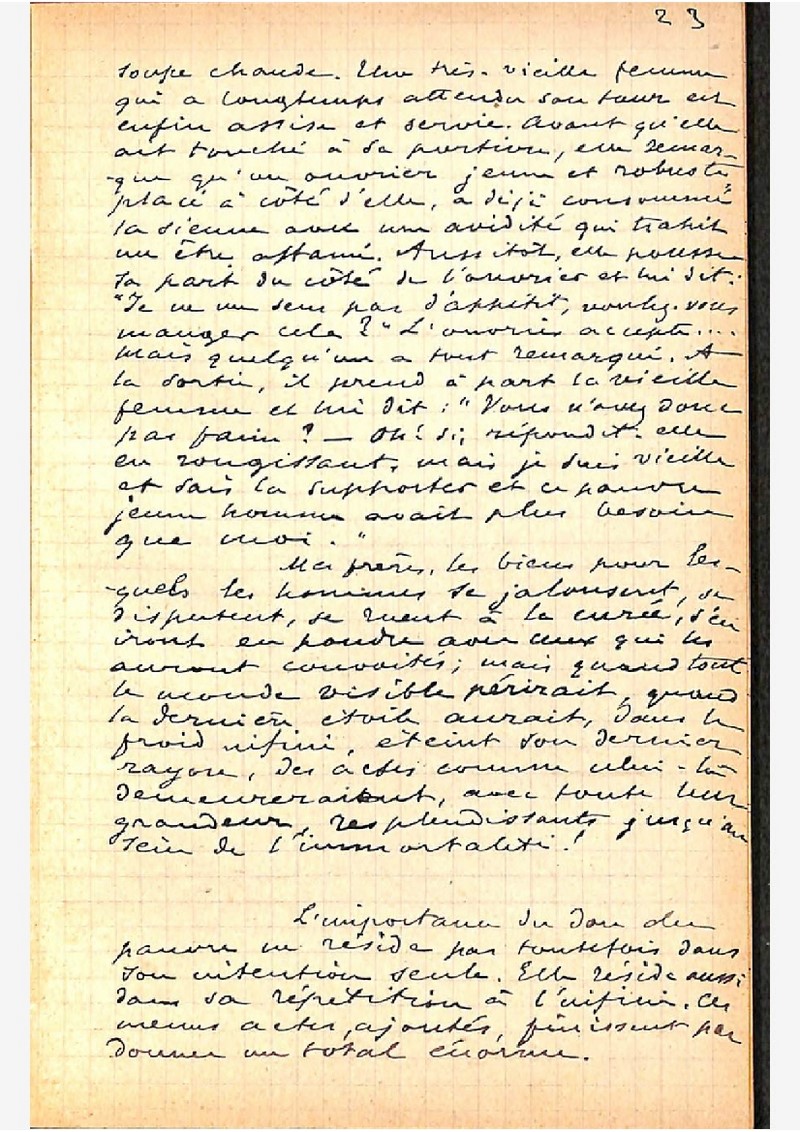 23
soupe chaude. Une très-vieille femme
qui a longtemps attendu son tour est
enfin assise et servie. Avant qu'elle
ait touché à sa portion, elle remar-
-que qu'un ouvrier jeune et robuste,
placé à côté d'elle, a déjà consommé
la sienne avec une avidité qui trahit
un être affamé. Aussitôt, elle pousse
sa part du côté de l'ouvrier et lui dit:
"Je ne me sens pas d'appétit, voulez-vous
manger cela?" L'ouvrier accepte....
Mais quelqu'un a tout remarqué. A
la sortie, il prend à part la vieille
femme et lui dit: "Vous n'avez donc
pas faim? — Oh! si, répondit-elle
en rougissant, mais je suis vieille
et sais la supporter et ce pauvre
jeune homme avait plus besoin
que moi."
Mes frères, les biens pour les-
-quels les hommes se jalousent, se
disputent, se ruent à la curée, s'en
iront en poudre avec ceux qui les
auront convoités; mais quand tout
le monde visible périrait, quand
la dernière étoile aurait, dans le
froid infini, éteint son dernier
rayon, des actes comme celui-là
demeureraient, avec toute leur
grandeur, resplendissants jusqu'au
sein de l'immortalité!
L'importance du don du
pauvre ne réside pas toutefois dans
son intention seule. Elle réside aussi
dans sa répétition à l'infini. Ces
menus actes, ajoutés, finissent par
donner un total énorme.